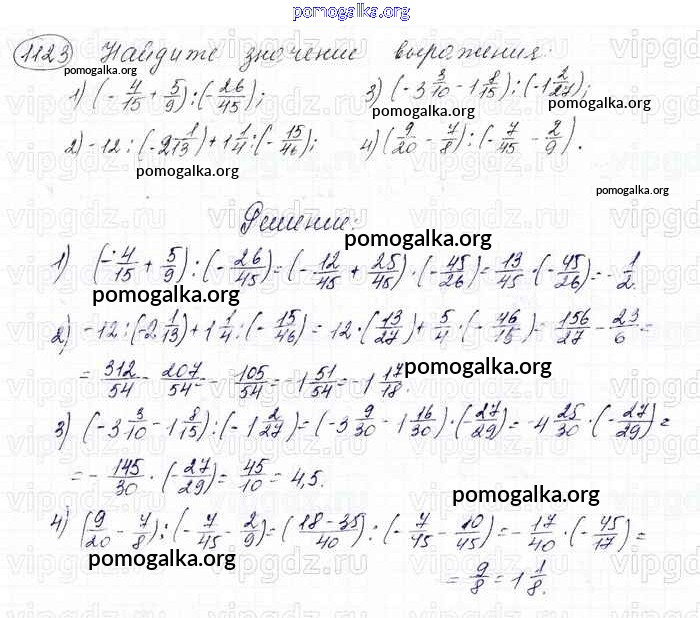 pomogalka.org
1123 Найдите значение выражения:
pomogalka.org pomogalka.org
1) (-4/15 + 5/9) : (-26/45); 3) (-3 3/10 - 1 8/15) : (-1 2/27);
2) -12 : (-2 1/13) + 1 1/4 : (-15/46); 4) (9/20 - 7/8) : (-7/45 - 2/9).
pomogalka.org
pomogalka.org
Решение:
pomogalka.org
1) (-4/15 + 5/9) : (-26/45) = (-12/45 + 25/45) · (-45/26) = 13/45 · (-45/26) = -1/2.
pomogalka.org
2) -12 : (-2 1/13) + 1 1/4 : (-15/46) = 12 · (13/27) + 5/4 · (-46/15) = 156/27 - 23/6 =
= 312/54 - 207/54 = - 105/54 = -1 51/54 = -1 17/18.
pomogalka.org
3) (-3 3/10 - 1 8/15) : (-1 2/27) = (-3 9/30 - 1 16/30) · (-27/29) = -4 25/30 · (-27/29) =
= - 145/30 · (-27/29) = 45/10 = 4,5.
pomogalka.org
4) (9/20 - 7/8) : (-7/45 - 2/9) = (18-35/40) : (-7/45 - 10/45) = -17/40 · (-45/17) =
pomogalka.org
= 9/8 = 1 1/8.
vipgdz.ru